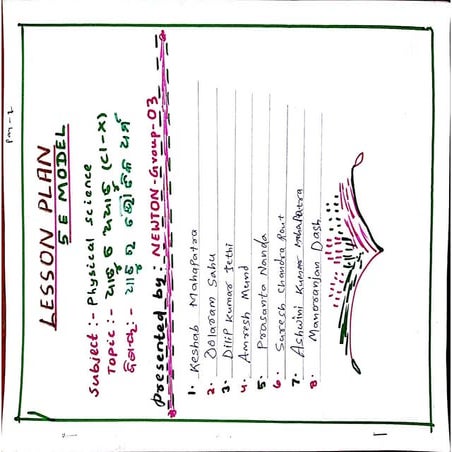 LESSON PLAN
5E MODEL
Subject :- Physical science
Topic :- ଧାତୁ ଓ ଅଧାତୁ (Cl-X)
ଧାତୁ ର ଭୌତିକ ଧର୍ମ
Presented by : NEWTON-Group-03
1. Keshab Mahapatra
2. Dolaram Sahu
3. Dilip Kumar Jethi
4. Amresh Mund
5. Prasanta Nanda
6. Suresh Chandra Rout
7. Ashwini Kumar Mahapatra
8. Manoranjan Dash